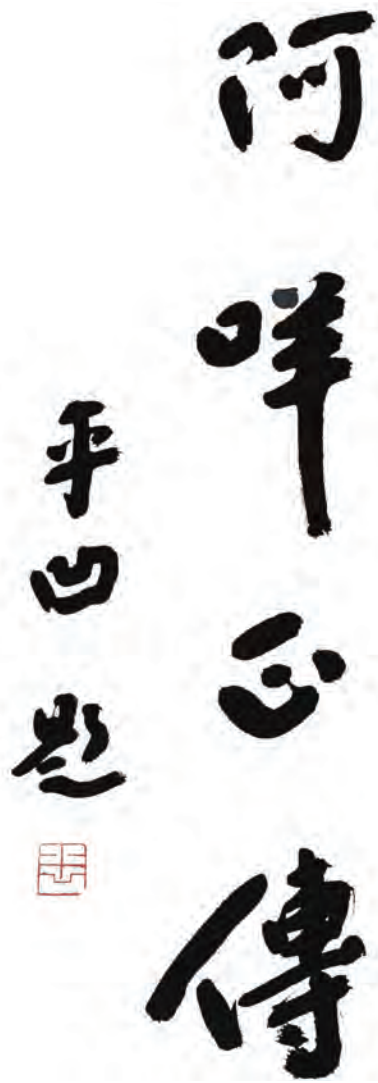 阿咩正傳
平凹題